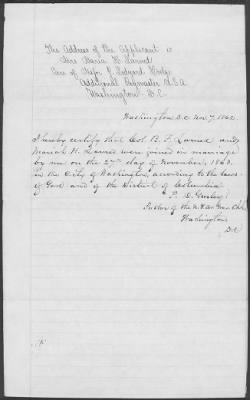 The Address of the Applicant is
Mrs Maria H. Larned
Care of Major J. Ledyard Hodge
Additional Paymaster U.S.A
Washington D.C.
Washington D.C. Nov. 7, 1862.
I hereby certify that Col B. F. Larned and
Maria H. Larned were joined in marriage
by me on the 27th day of November, 1860.
in the City of Washington, according to the laws
of God and of the District of Columbia
P. D. Gurley
Pastor of the N.Y. Av. Pres. Chh.
Washington
D.C.